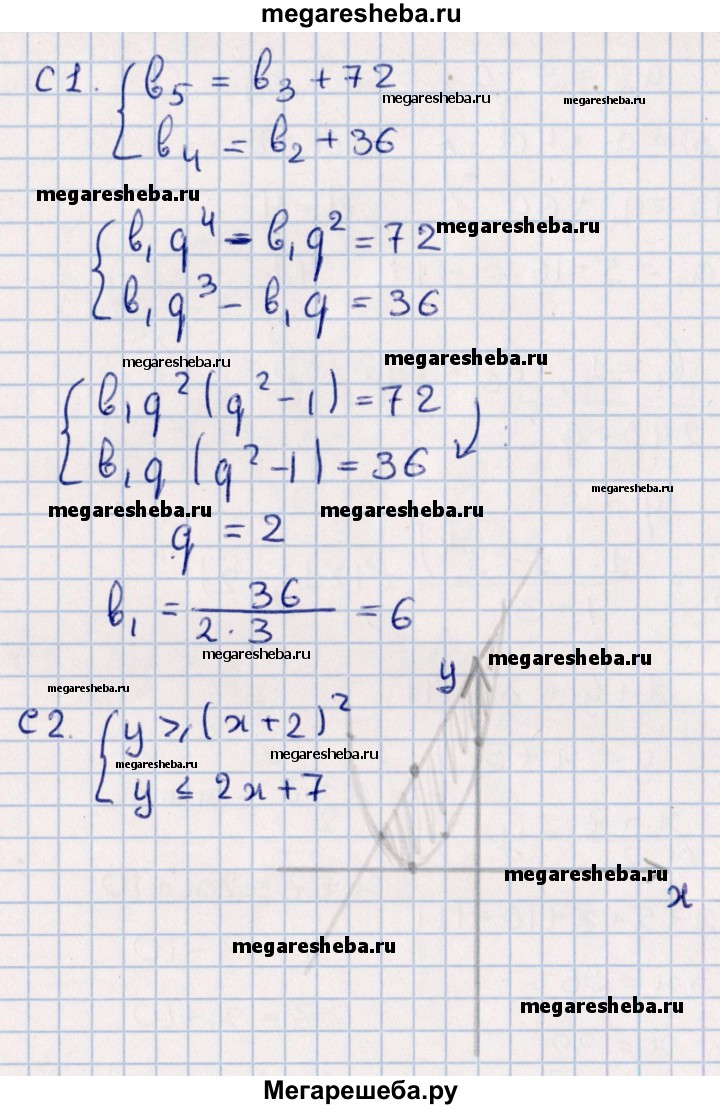 megaresheba.ru
C1. { b₅ = b₃ + 72
megaresheba.ru megaresheba.ru
b₄ = b₂ + 36
megaresheba.ru
{ b₁q⁴ - b₁q² = 72 megaresheba.ru
b₁q³ - b₁q = 36
megaresheba.ru megaresheba.ru
{ b₁q²(q² - 1) = 72
b₁q (q² - 1) = 36
megaresheba.ru megaresheba.ru megaresheba.ru
q = 2
b₁ = 36 / 2·3 = 6
megaresheba.ru megaresheba.ru
y
megaresheba.ru
C2. { y ⩾ (x + 2)²
megaresheba.ru megaresheba.ru
y ≤ 2x + 7
megaresheba.ru
x
megaresheba.ru
megaresheba.ru
Мегарешеба.ру